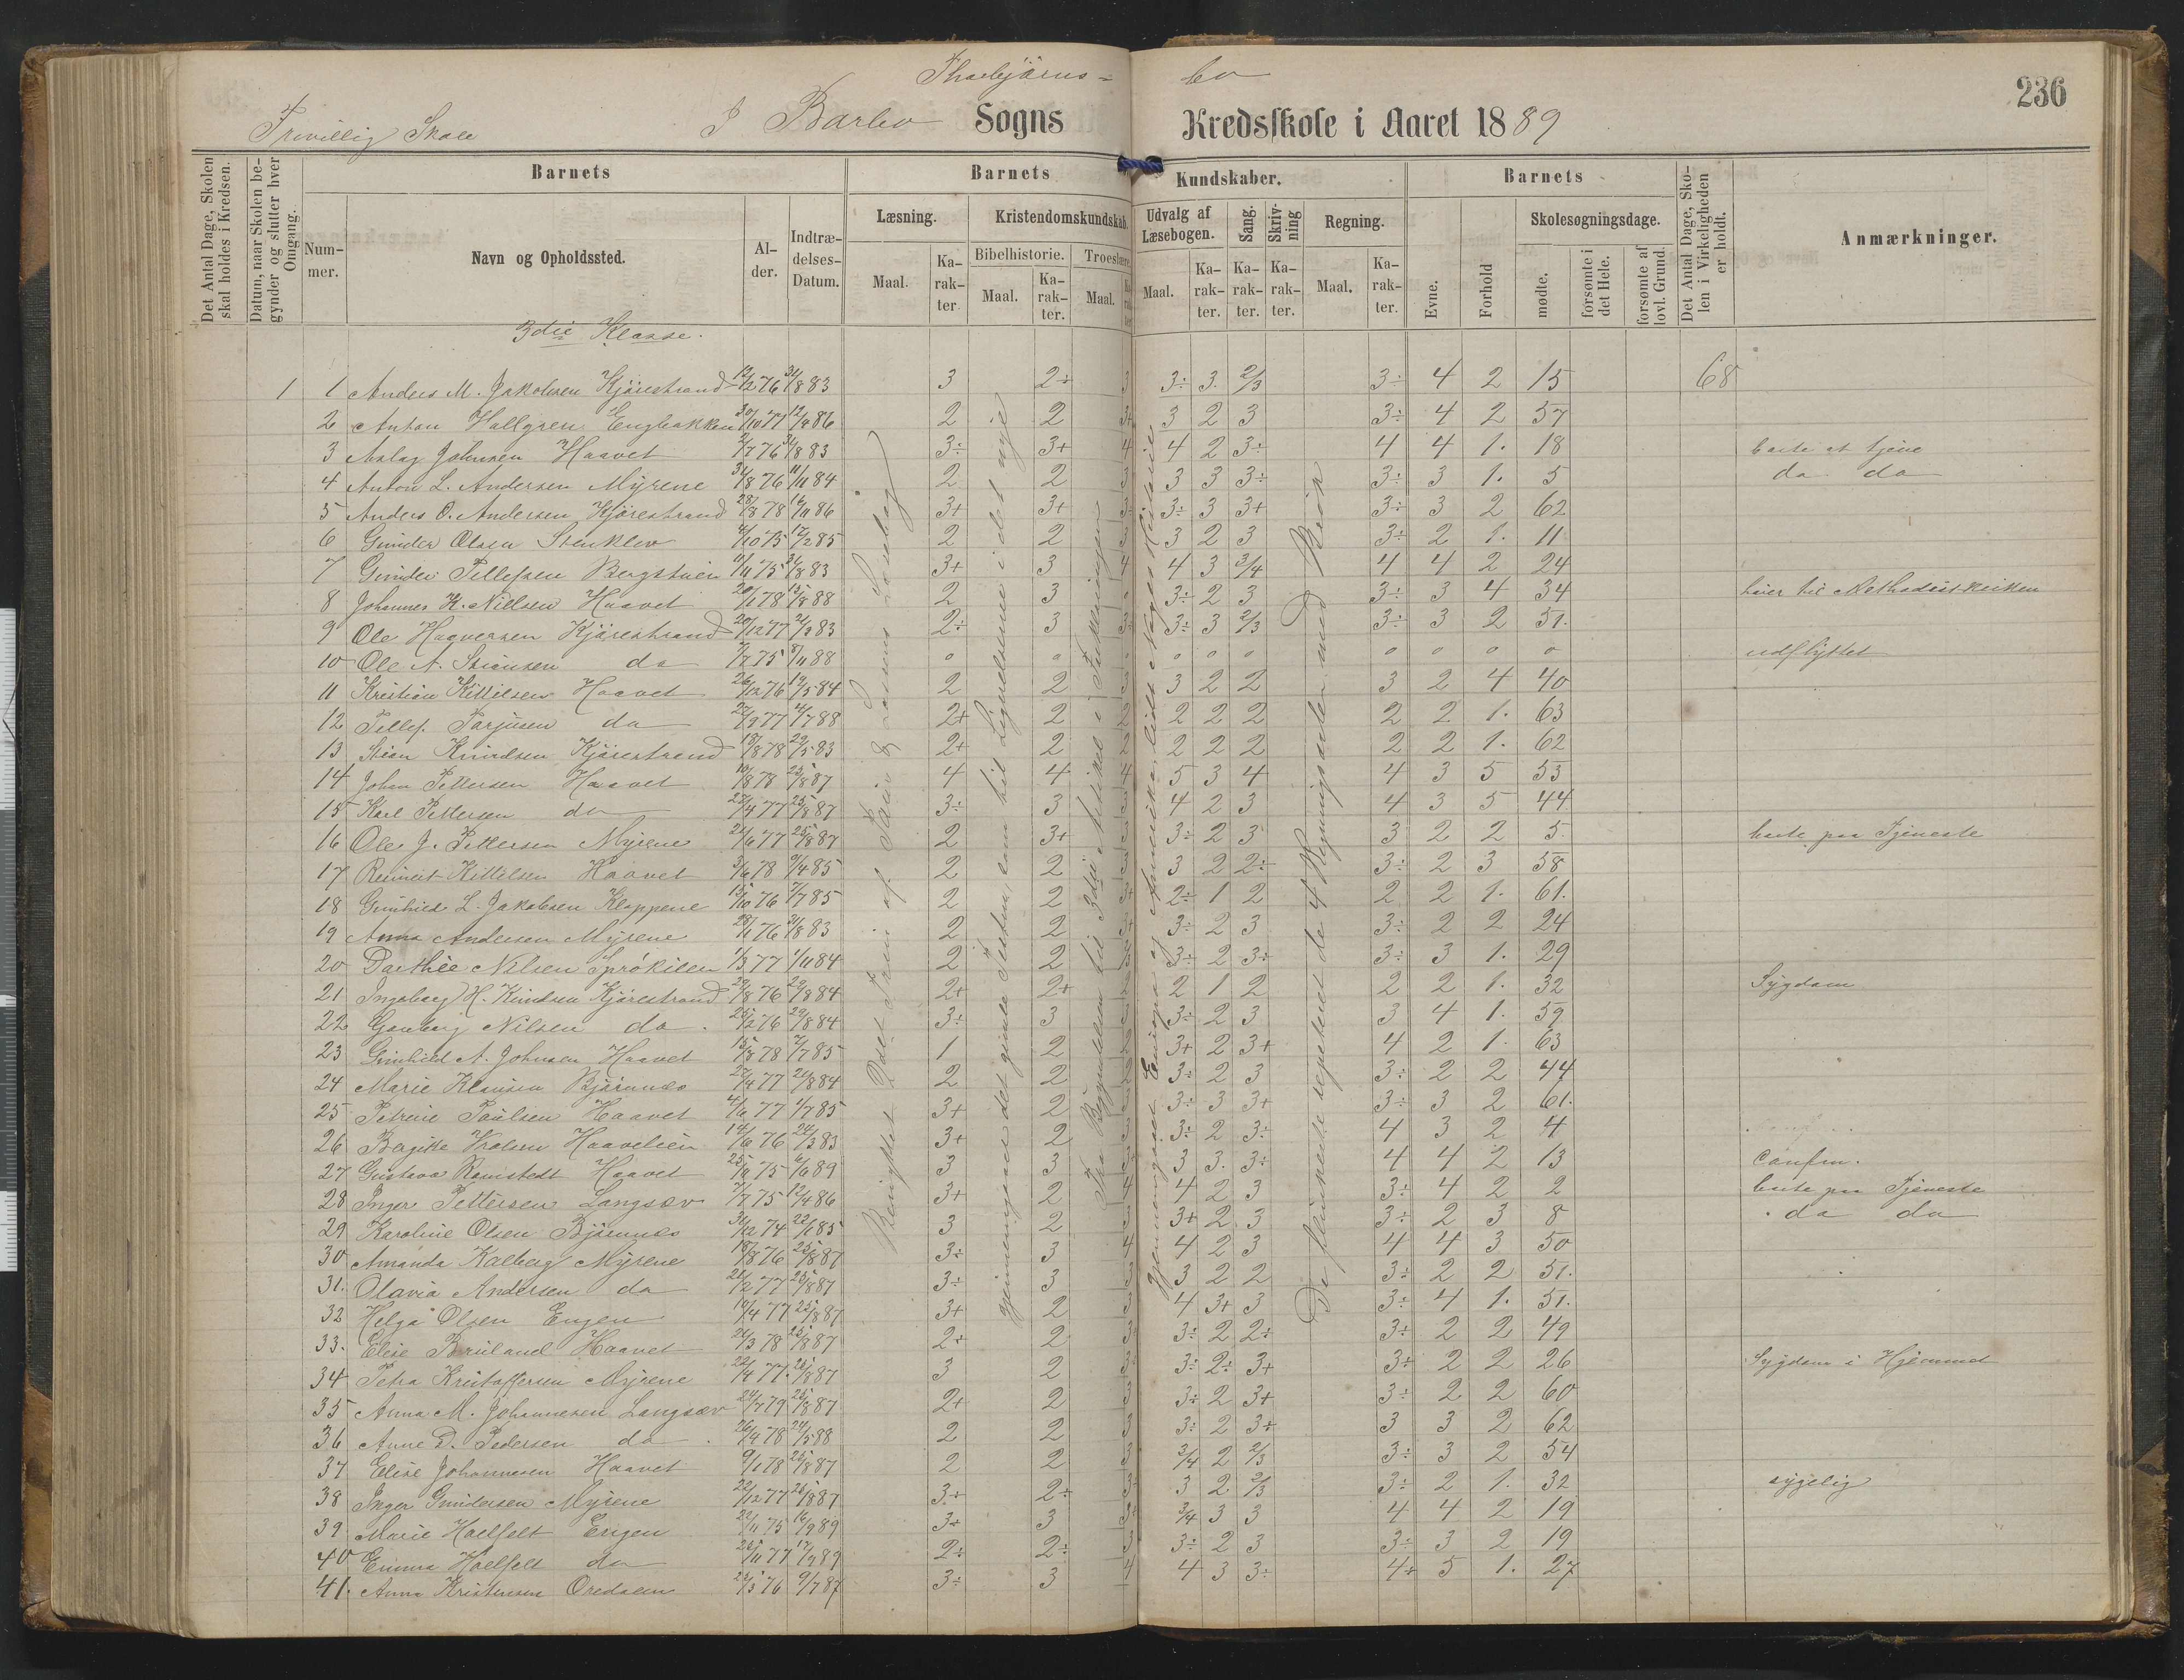 236
Thorbjørns= bo
Frivillig Skole I Barbo Sogns Kredsskole i Aaret 1889
Det Antal Dage, Skolen skal holdes i Kredsen.
Datum, naar Skolen begynder og slutter hver Omgang.
Barnets
Nummer.
Navn og Opholdssted.
Alder.
Indtrædelses-Datum.
Barnets Kundskaber.
Læsning.
Maal.
Karakter
Kristendomskundskab.
Bibelhistorie.
Maal.
Karakter.
Troeslære.
Maal.
Udvalg af Læsebogen.
Maal.
Karakter.
Sang.
Karakter.
Skrivning
Karakter.
Regning.
Maal.
Karakter.
Barnets
Evne.
Forhold
Skolesøgningsdage.
mødte.
forsømte i det Hele.
forsømte af lovl. Grund.
Det Antal Dage, Skolen i Virkeligheden er holdt.
Anmærkninger.
3die Klasse.
1 1 Anders M. Jakobsen Kjørestrand 12/12 76 31/8 83 3 2÷ 3 3÷ 3. 2/3 3÷ 4 2 15 68
2 Anton Hallgren Engbakken 30/10 77 12/4 86 2 2 3+ 3 2 3 3÷ 4 2 57
3 Aslag Johnsen Haavet 2/7 76 31/8 83 3÷ 3+ 4 4 2 3÷ 4 4 1. 18 borte at tjene
4 Anton L. Andersen Myrene 31/8 76 11/11 84 2 2 3 3 3 3÷ 3÷ 3 1. 5 do do
5 Anders O. Andersen Kjørestrand 28/8 78 16/11 86 3+ 3+ 3÷ 3÷ 3 3+ 3÷ 3 2 62
6 Gunder Olsen Stenklev 4/10 75 17/2 85 2 2 3 3 2 3 3÷ 2 1. 11
7 Gunder Tellefsen Bergstuen 11/11 75 31/8 83 3+ 3 4 4 3 3/4 4 4 2 24
8 Johannes K. Nielsen Haavet 20/1 78 15/8 88 2 3 0 3÷ 2 3 3÷ 3 4 34 hører til Methodistkirken
9 Ole Haaversen Kjørestrand 20/12 77 24/3 83 2÷ 3 3÷ 3÷ 3 2/3 3÷ 3 2 51.
10 Ole A. Steensen do 7/7 75 8/11 88 0 0 0 0 0 0 0 0 0 0 udflyttet
11 Kristian Kittilsen Haavet 26/12 76 19/5 84 2 2 3 3 2 2 3 2 4 40
12 Tellef. Tarjusen do 27/9 77 4/7 88 2+ 2 2 2 2 2 2 2 1. 63
13 Stean Knudsen Kjørestrand 18/8 78 29/5 83 2+ 2 2 2 2 2 2 2 1. 62
14 Johan Pettersen Haavet 10/8 78 25/8 87 4 4 4 5 3 4 4 3 5 53
15 Karl Pettersen do 27/4 77 25/8 87 3÷ 3 3 4 2 3 4 3 5 44
16 Ole J. Pettersen Myrene 24/6 77 25/8 87 2 3+ 3÷ 2 3 3 2 2 5 borte paa Tjeneste
17 Reinert Kittilsen Haavet 3/6 78 9/4 85 2 2 3 3 2 2÷ 3÷ 2 3 58
18 Gunhild L. Jakobsen Kloppene 15/10 76 7/7 85 2 2 3+ 2÷ 1 2 2 2 1. 61.
19 Anna Andersen Myrene 28/1 76 31/8 83 2 2 3+ 3÷ 2 3 3÷ 2 2 24
20 Dorthee Nilsen Sprøkilen 1/3 77 1/11 84 2 2 3 3÷ 2 3÷ 3÷ 3 1. 29
21 Ingeborg H. Knudsen Kjørestrand 29/8 76 29/8 84 2+ 2+ 2 2 1 2 2 2 1. 32 Sygdom
22 Gonborg Nilsen do. 25/12 76 29/8 84 3÷ 3 3÷ 2 3 3 4 1. 59
23 Gunhild A. Johnsen Haavet 15/8 78 7/7 85 1 2 2 3+ 2 3+ 4 2 1. 63
24 Marie Klausen Bjørnnes 27/4 77 24/8 84 2 2 2 3÷ 2 3 3÷ 2 2 44
25 Petrine Poulsen Haavet 4/6 77 1/7 85 3+ 2 3 3÷ 3 3+ 3÷ 3 2 61.
26 Bergitte Hvolsen Haaveleien 14/6 76 24/3 83 3+ 2 3 3÷ 2 3÷ 4 3 2 4
27 Gustava Ramstedt Haavet 25/4 75 6/6 89 3 3 3÷ 3 3. 3÷ 4 4 2 13 Confrm.
28 Inger Pettersen Langsæv 7/7 75 12/4 86 3+ 2 4 4 2 3 3÷ 4 2 2 borte paa Tjeneste
29 Karoline Olsen Bjørnnes 31/12 74 22/1 85 3 2 3 3+ 2 3 3÷ 2 3 8 do do
30 Amanda Kalberg Myrene 18/8 76 25/8 87 3÷ 3 4 4 2 3 4 4 3 50
31. Olavia Andersen do 21/2 77 25/8 87 3÷ 3 3 3 2 2 3÷ 2 2 51.
32 Helga Olsen Engen 19/4 77 25/8 87 3+ 2 3 4 3+ 3 3÷ 4 1. 51.
33. Elise Bruland Haavet 24/3 78 25/8 87 2+ 2 3÷ 3÷ 2 2÷ 3÷ 2 2 49
34 Petra Kristoffersen Myrene 22/4 77. 25/8 87 3 2 3÷ 3÷ 2÷ 3+ 3+ 2 2 26 Sygdom i Hjemmet
35 Anna M. Johannesen Langsæv 24/7 79 25/8 87 2+ 2 3 3÷ 2 3+ 3÷ 2 2 60
36 Anne D. Pedersen do. 26/4 78 24/5 88 2 2 3 3÷ 2 3÷ 3 3 2 62
37 Elise Johannesen Haavet 9/1 78 25/8 87 2 2 3 3/4 2 2/3 3÷ 3 2 54
38 Inger Gundersen Myrene 22/12 77 25/8 87 3+ 2÷ 3÷ 3 2. 2/3 3÷ 2 1. 32 sygelig
39 Marie Hoelfelt Engen 22/11 75 16/9 89 3+ 3 3+ 3/4 3 3 4 4 2 19
40 Emma Hoelfelt do 25/11 77 17/9 89 2÷ 2÷ 3 3÷ 2 3 3÷ 3 2 19
41. Anna Kristensen Øredalen 25/3 76 9/7 87 3÷ 3 4 4 3 3÷ 4+ 5 1. 27
Benyttet 2det Trin af Pavis & Lassens Læsebog
gjennemgaaet det gamle Testam, som til Lignelserne i det nye
Fra Begyndelsen til 3die Artikel i Forklaringen
gjennemgaaet Europa og Amerika, lidt Norges Historie
De flinkeste repeteret de 4 Regningsarter med Brøk